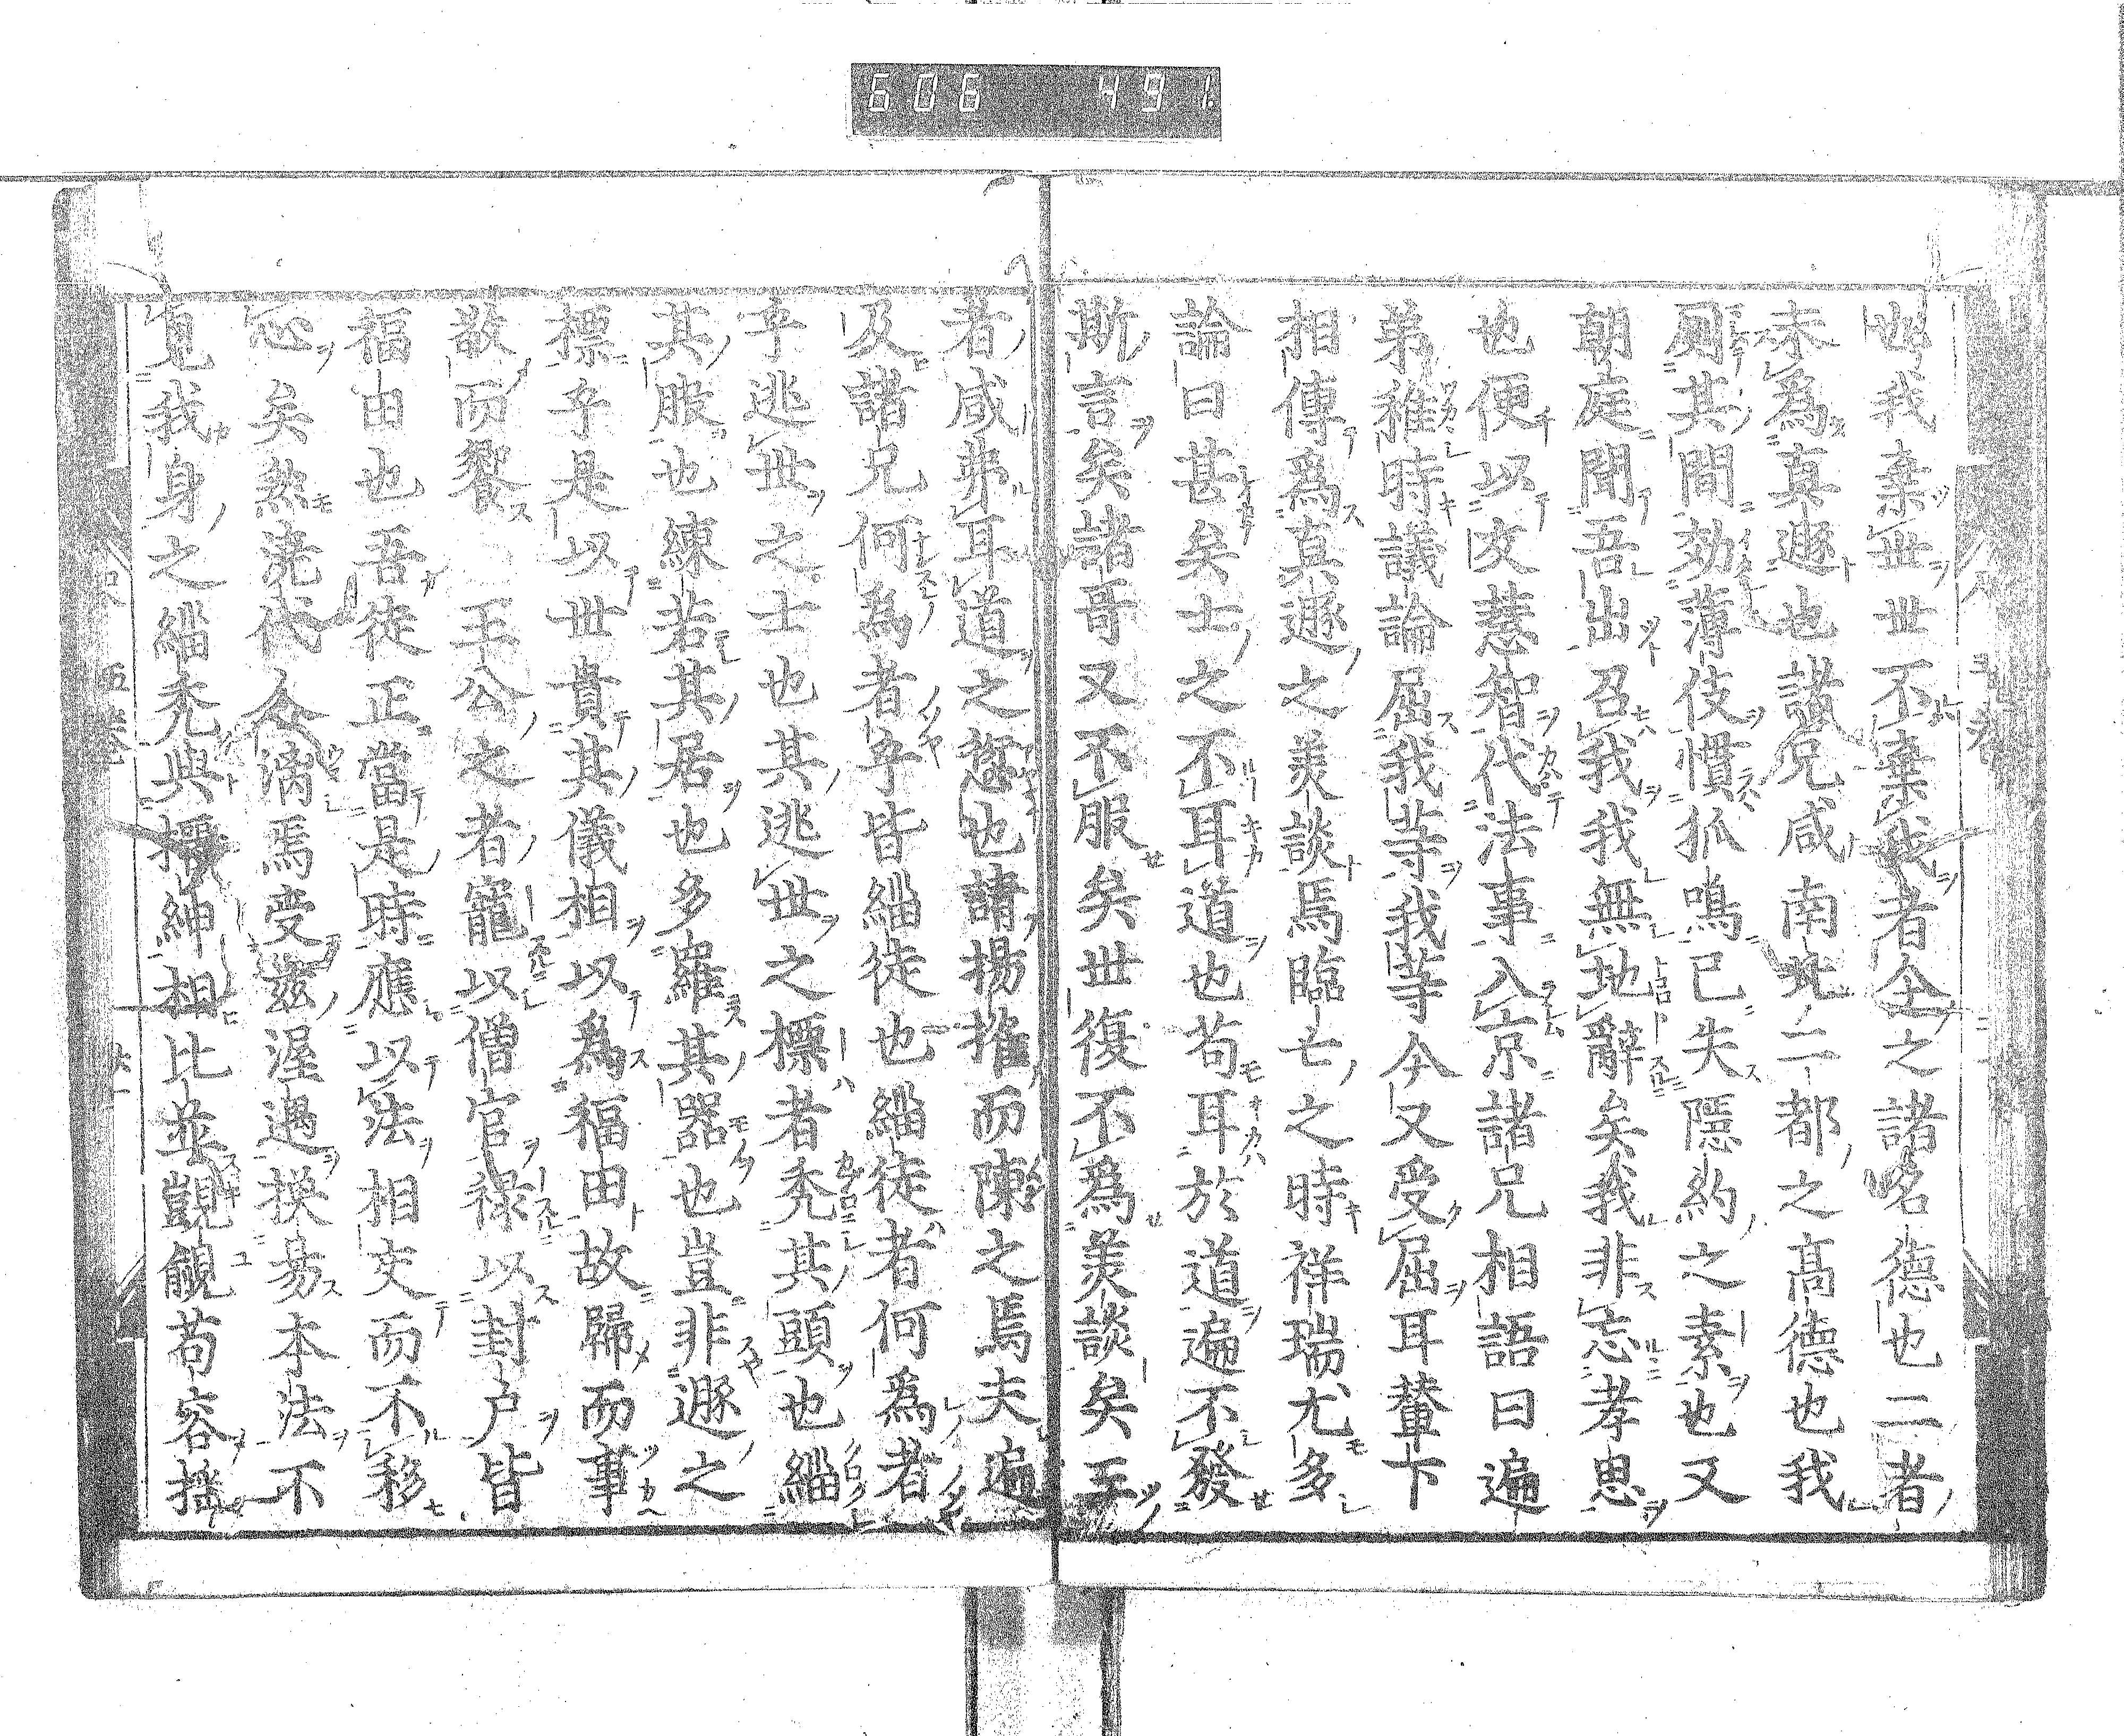 606 491
也我棄世世不棄我者全之諸名德也二者
未爲真遯也諸兄咸南北二都之髙德也我
厠其間効薄伎慣狐鳴已失隱約之素也又
朝庭聞吾出召我我無地辭矣我非忘孝思
也便以文慧智代法事入京諸兄相語曰遍
弟稚時議論屈我等我等今又受屈耳輦下
相傳爲真遯之美談焉臨亡之時祥瑞尤多
論曰甚矣士之不耳道也苟耳於道遍不發
斯言矣諸哥又不服矣世復不爲美談矣王
者咸弗耳道之愆也請揚搉而陳之焉夫遍
及諸兄何為者乎皆緇徒也緇徒者何爲者
乎逃世之士也其逃世之標者秃其頭也緇
其服也練若其居也多羅其器也豈非遯之
標乎是以世貴其儀相以爲福田故歸而事
敬而饗 王公之者寵以僧官祿以封户皆
福田也吾徒正當是時應以法相交而不移
心矣然澆代人漓焉受茲渥遇換易本法不
覓我身之緇秃與搢紳相比並覬覦苟容